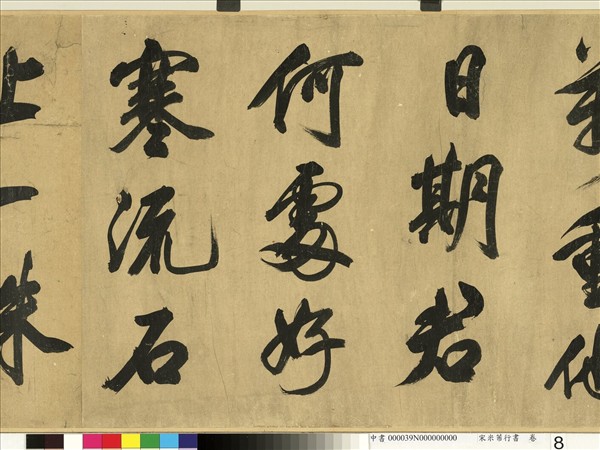 重他
日期君
何處好
寒流石
上一株
中書 000039N000000000 宋米芾行書 卷 8